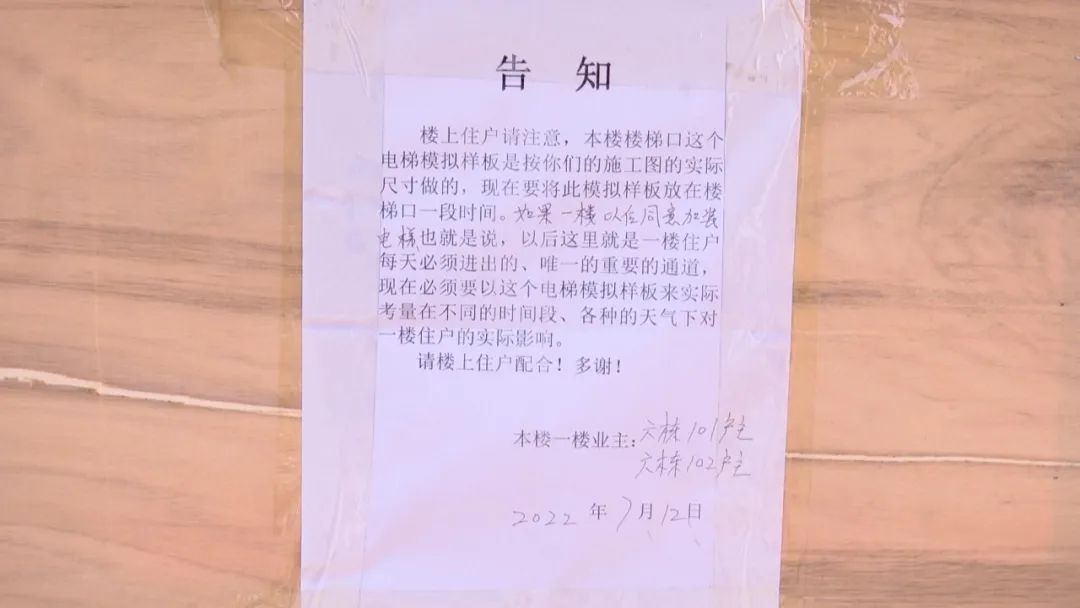 告 知
楼上住户请注意，本楼楼梯口这个
电梯模拟样板是按你们的施工图的实际
尺寸做的，现在要将此模拟样板放在楼
梯口一段时间。如果一楼以后同意加装
电梯也就是说，以后这里就是一楼住户
每天必须进出的、唯一的重要的通道，
现在必须要以这个电梯模拟样板来实际
考量在不同的时间段、各种的天气下对
一楼住户的实际影响。
请楼上住户配合！多谢！
本楼一楼业主：六栋101户主
六栋102户主
2022 年 7月 12日